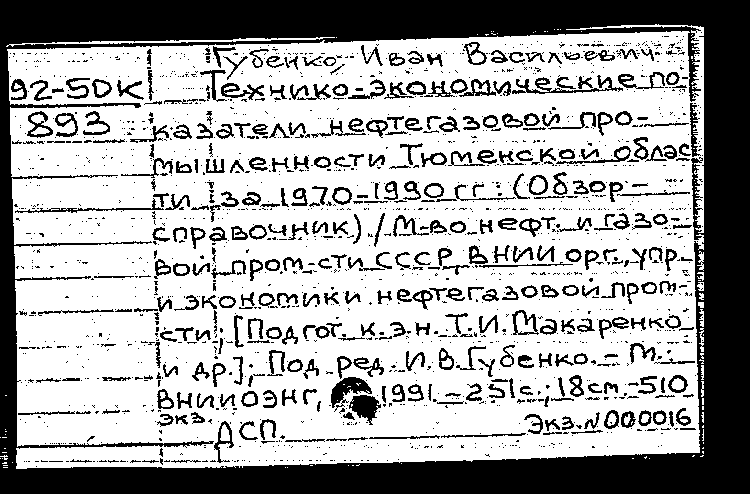 Губенко, Иван Васильевич
92-5ДК Технико-экономические по-
893 казатели нефтегазовой про-
мышленности Тюменской облас
ти за 1970-1990 гг : (Обзор-
справочник) / М-во нефт. и газо-
вой пром-сти СССР, ВНИИ орг., упр.
и экономики нефтегазовой пром-
сти; [Подгот. к.э.н. Т.И. Макаренко
и др.]; Под ред. И.В. Губенко. - М.:
ВНИИОЭНГ, 1991. - 251с.; 18см. - 510
экз. ДСП. Экз. N 000016